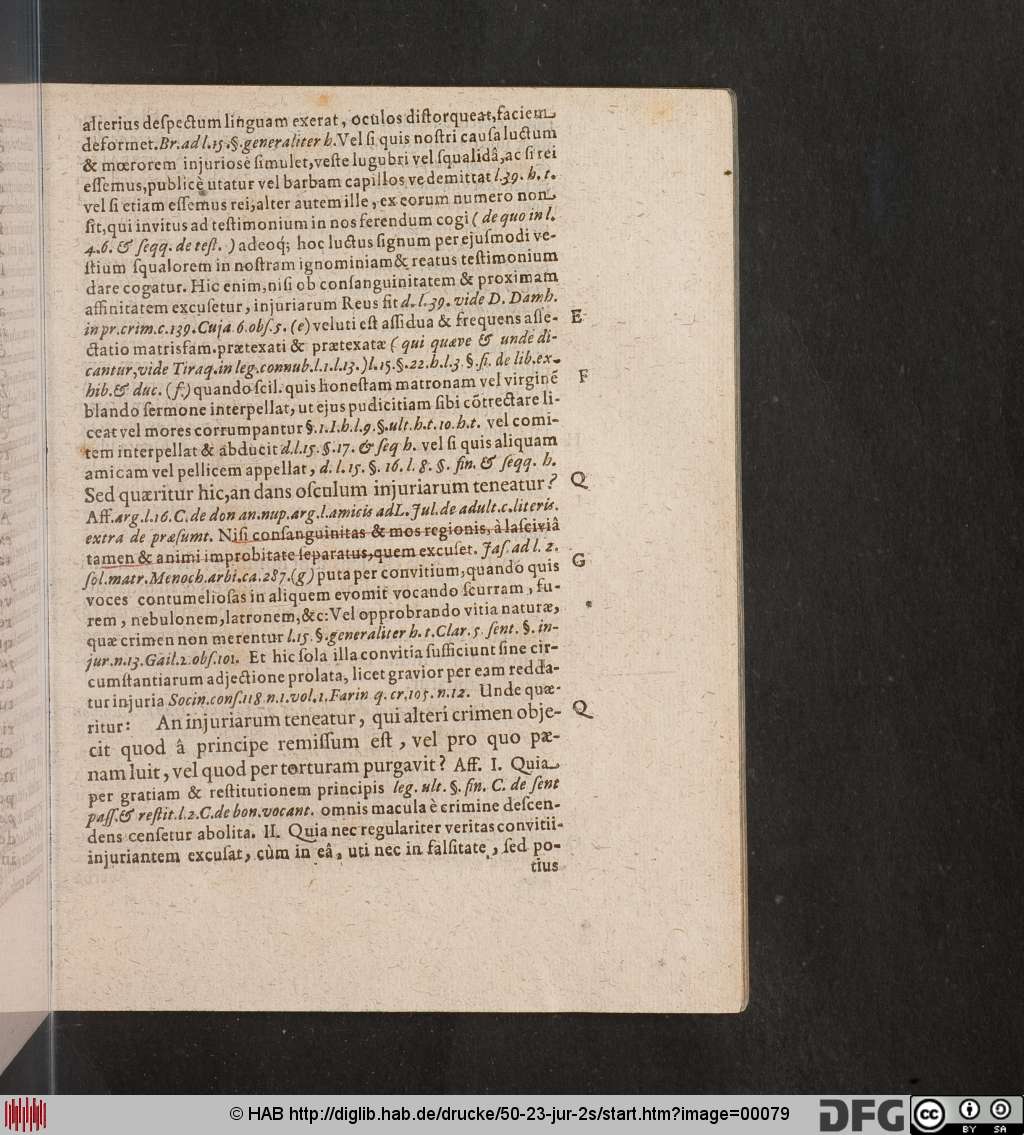 alterius deſpectum linguam exerat, oculos diſtorqueat, faciem
deformet. Br. ad l. 15. §. generaliter h. Vel ſi quis noſtri cauſa luctum
& mœrorem injurioſè ſimulet, veſte lugubri vel ſqualidâ, ac ſi rei
eſſemus, publicè utatur vel barbam capillos ve demittat l. 39. h. t.
vel ſi etiam eſſemus rei, alter autem ille, ex eorum numero non
ſit, qui invitus ad teſtimonium in nos ferendum cogi ( de quo in l.
4. 6. & ſeqq. de teſt. ) adeoq; hoc luctus ſignum per ejuſmodi ve-
ſtium ſqualorem in noſtram ignominiam & reatus teſtimonium
dare cogatur. Hic enim, niſi ob conſanguinitatem & proximam
affinitatem excuſetur, injuriarum Reus fit d. l. 39. vide D. Damh.
in pr. crim. c. 139. Cuja. 6. obſ. 5. (e) veluti eſt aſſidua & frequens aſſe-
E
ctatio matrisfam. prætexati & prætexatæ ( qui quæve & unde di-
cantur, vide Tiraq. in leg. connub. l. 1. l. 13. ) l. 15. §. 22. h. l. 3. §. fi. de lib. ex-
hib. & duc. (f.) quando ſcil. quis honeſtam matronam vel virginẽ
F
blando ſermone interpellat, ut ejus pudicitiam ſibi cõtrectare li-
ceat vel mores corrumpantur §. 1. I. h. l. 9. §. ult. h. t. 10. h. t. vel comi-
tem interpellat & abducit d. l. 15. §. 17. & ſeq h. vel ſi quis aliquam
amicam vel pellicem appellat, d. l. 15. §. 16. l. 8. §. fin. & ſeqq. h.
Sed quæritur hic, an dans oſculum injuriarum teneatur?
Q
Aff. arg. l. 16. C. de don an. nup. arg. l. amicis ad L. Jul. de adult. c. literis.
extra de præſumt. Niſi conſanguinitas & mos regionis, à laſciviâ
tamen & animi improbitate ſeparatus, quem excuſet. Jaſ. ad l. 2.
ſol. matr. Menoch. arbi. ca. 287. (g) puta per convitium, quando quis
G
voces contumelioſas in aliquem evomit vocando ſcurram, fu-
rem, nebulonem, latronem, &c: Vel opprobrando vitia naturæ,
quæ crimen non merentur l. 15. §. generaliter h. t. Clar. 5. ſent. §. in-
jur. n. 13. Gail. 2. obſ. 101. Et hic ſola illa convitia ſufficiunt ſine cir-
cumſtantiarum adjectione prolata, licet gravior per eam redda-
tur injuria Socin. conſ. 118 n. 1. vol. 1. Farin q. cr. 105. n. 12. Unde quæ-
ritur: An injuriarum teneatur, qui alteri crimen obje-
Q
cit quod â principe remiſſum eſt, vel pro quo pæ-
nam luit, vel quod per torturam purgavit? Aff. I. Quia
per gratiam & reſtitutionem principis leg. ult. §. fin. C. de ſent
paſſ. & reſtit. l. 2. C. de bon. vocant. omnis macula è crimine deſcen-
dens cenſetur abolita. II. Quia nec regulariter veritas convitii
injuriantem excuſat, cùm in eâ, uti nec in falſitate, ſed po-
tius
© HAB http://diglib.hab.de/drucke/50-23-jur-2s/start.htm?image=00079
DFG
cc BY SA